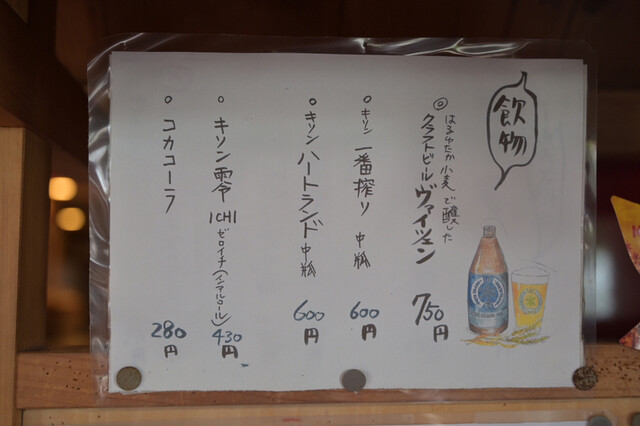 飲物
◎ はるゆたか小麦で醸した
クラフトビール ヴァイツェン 750円
○ キリン 一番搾り 中瓶 600円
○ キリン ハートランド 中瓶 600円
○ キリン 零ICHI ゼロイチ(ノンアルコール) 430円
○ コカコーラ 280円